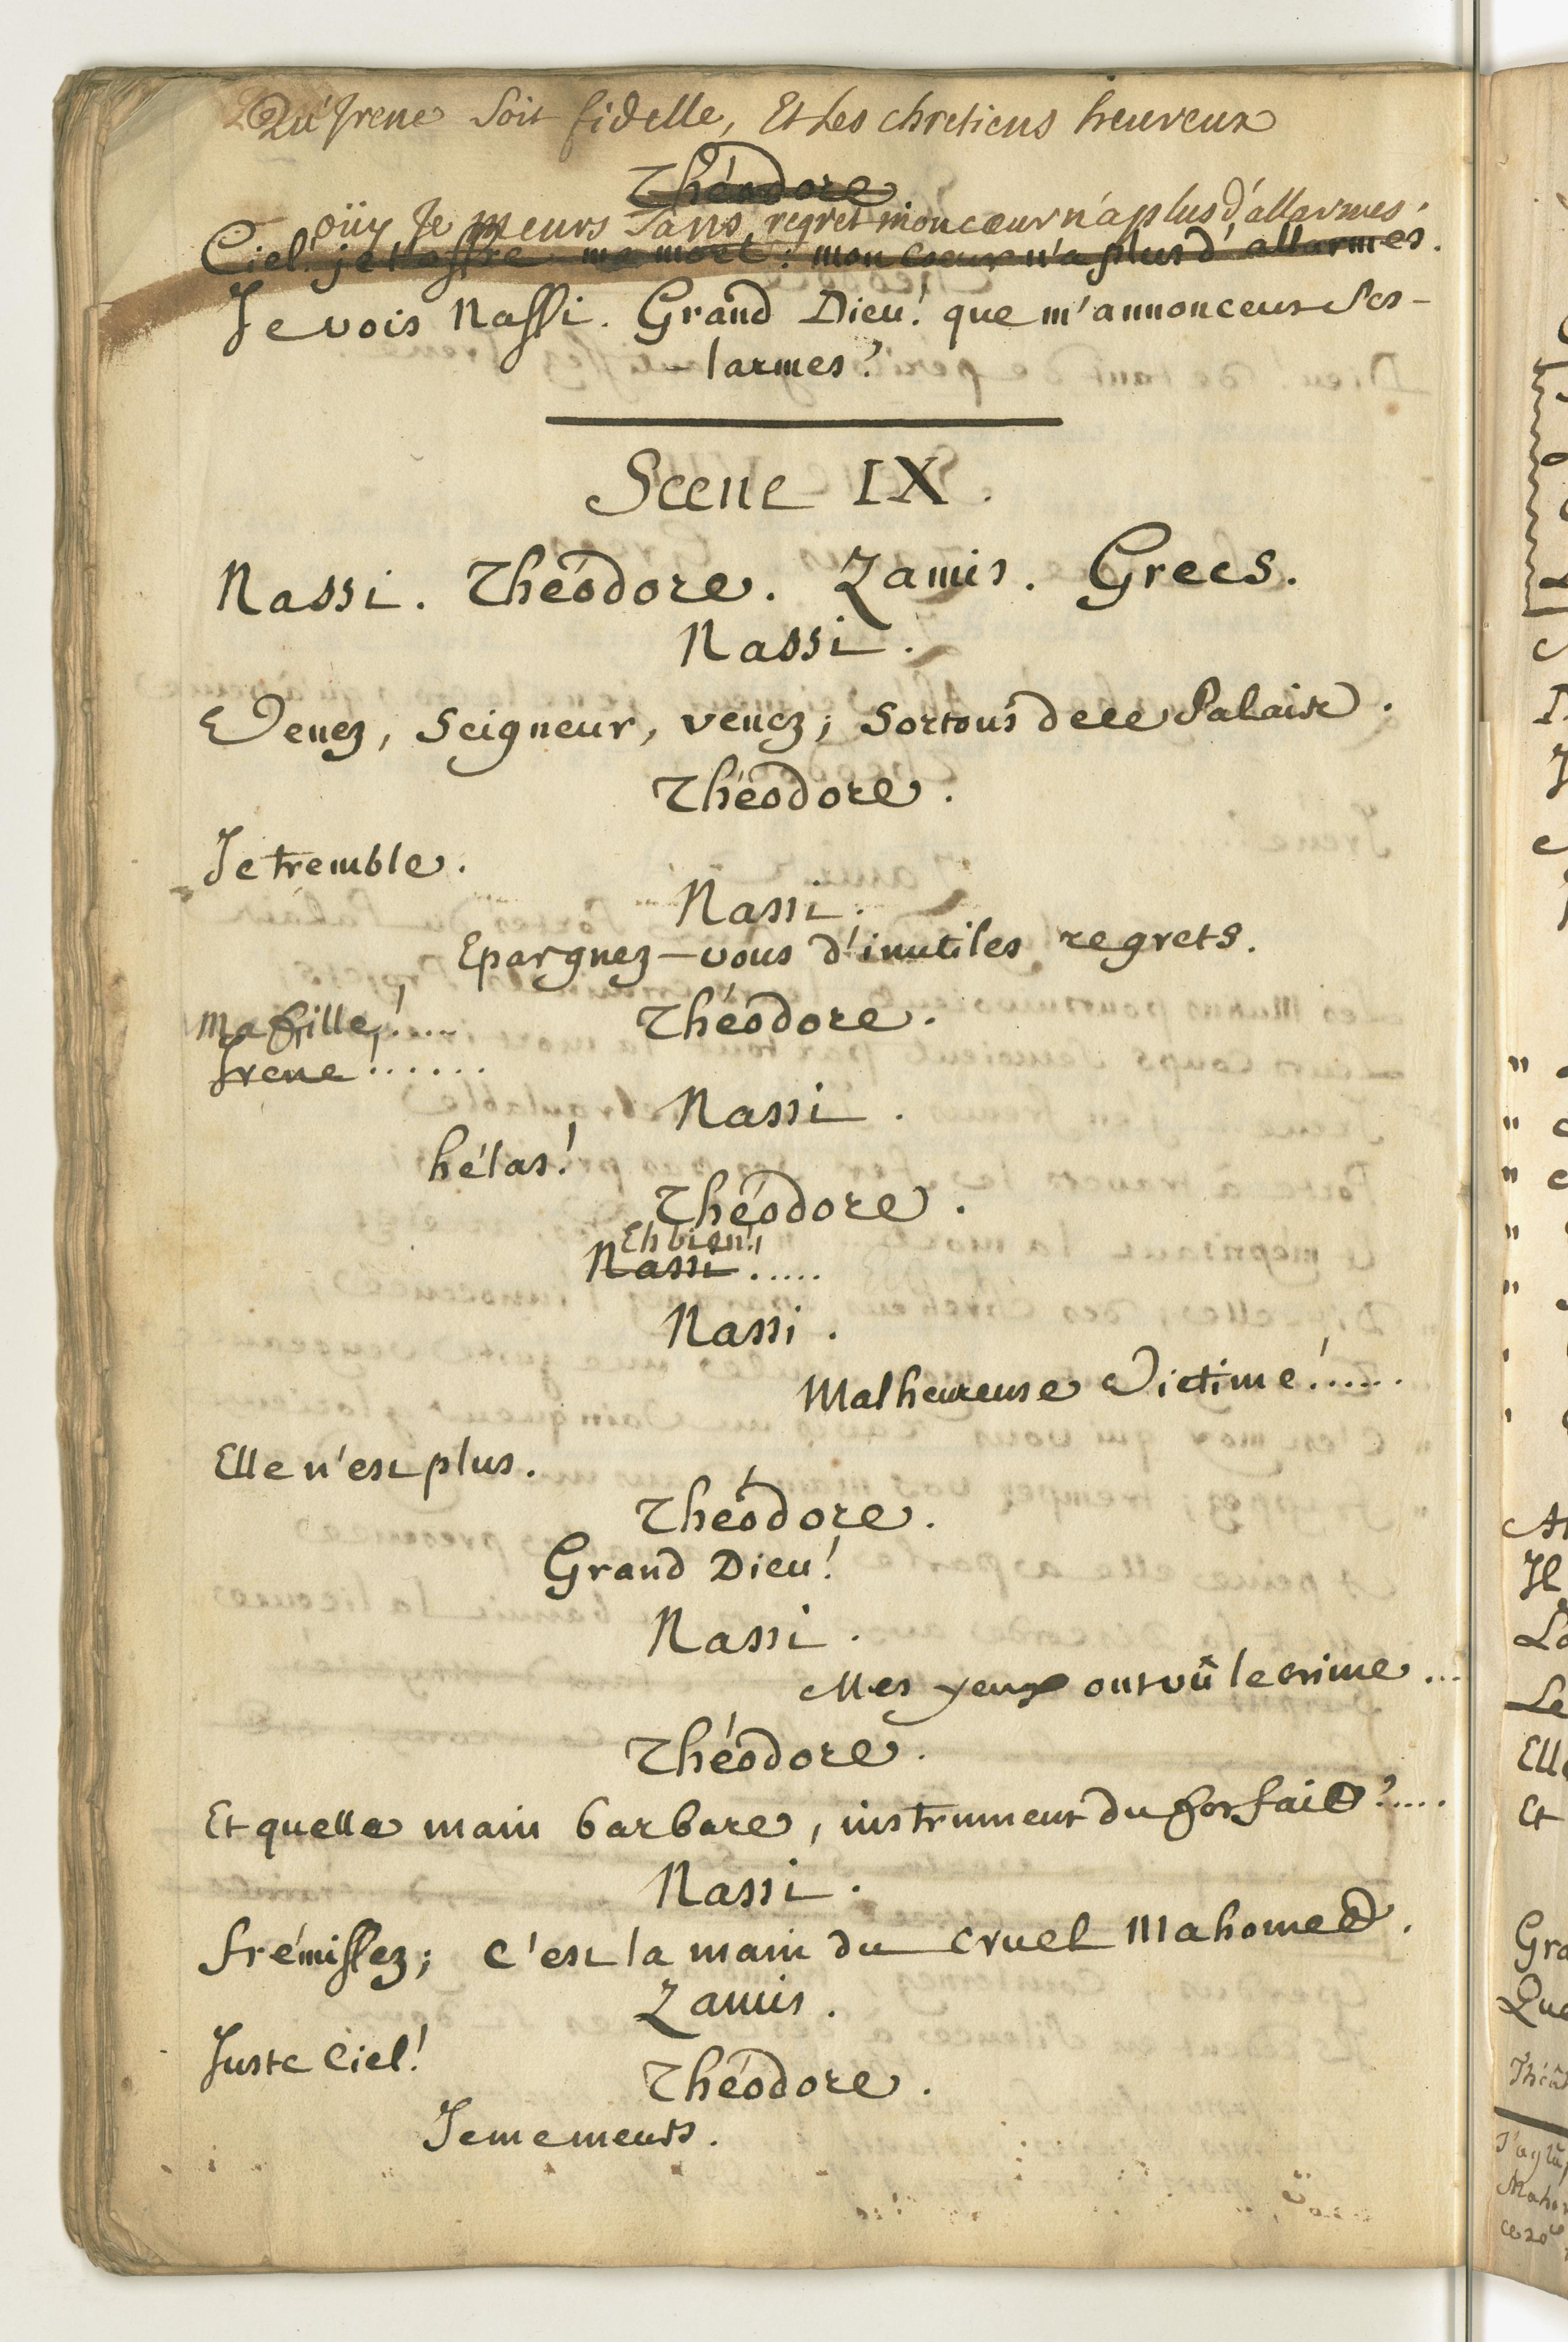 Qu'Irene soit fidelle, Et Les chretiens heureux
Théodore
oüy Je meurs sans regret mon cœur n'a plus d'allarmes.
Ciel! je t'offre ma mort: mon coeur n'a plus d'allarmes.
Je vois Nassi. Grand Dieu! que m'annoncent ses-
larmes?
Scene IX.
Nassi. Théodore. Zamis. Grecs.
Nassi.
Venez, Seigneur, venez; sortons de ce Palais.
Théodore.
Je tremble.
Nassi.
Epargnez-vous d'inutiles regrets.
Théodore.
Ma fille!....
Irene!......
Nassi.
hélas!
Théodore.
Eh bien!
Nassi.....
Nassi.
Malheureuse Victime!......
Elle n'est plus.
Théodore.
Grand Dieu!
Nassi.
Mes yeux ont vû le crime...
Théodore.
Et quelle main barbare, instrument du forfait?.....
Nassi.
frémissez; c'est la main du cruel Mahomed.
Zamis.
Juste Ciel!
Théodore.
Je me meurs.